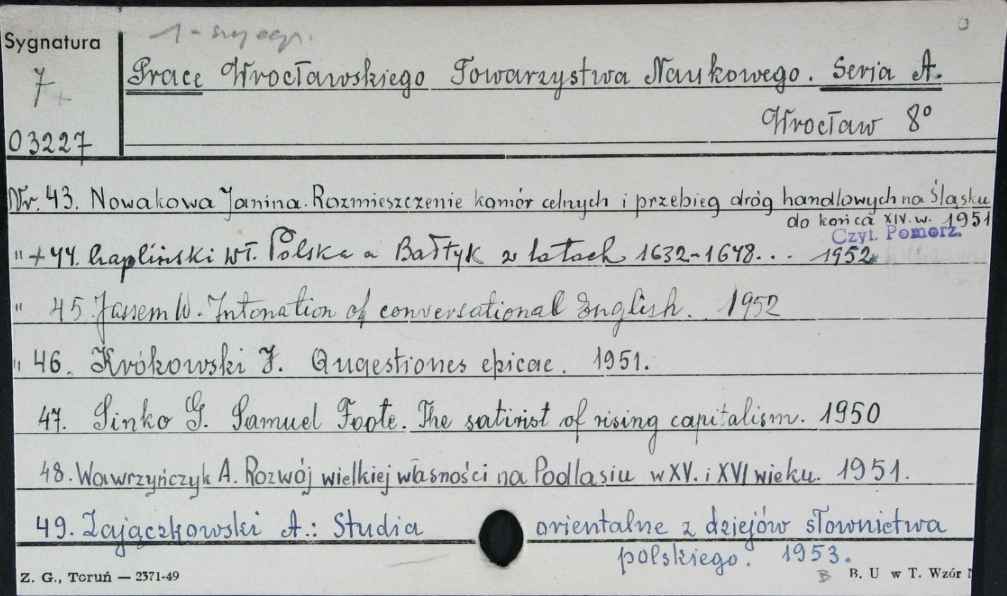 Sygnatura
7
03227
Prace Wrocławskiego Towarzystwa Naukowego. Seria A.
Wrocław 8°
Nr. 43. Nowakowa Janina. Rozmieszczenie komór celnych i przebieg dróg handlowych na Śląsku
do końca XIV. w. 1951
Czyt. Pomorz.
" + 44. Czapliński Wł. Polska a Bałtyk w latach 1632-1648... 1952
" 45. Jassem W. Intonation of conversational English. 1952
" 46. Krókowski J. Quaestiones epicae. 1951.
47. Sinko G. Samuel Foote. The satirist of rising capitalism. 1950
48. Wawrzyńczyk A. Rozwój wielkiej własności na Podlasiu w XV. i XVI wieku. 1951.
49. Zajączkowski A.: Studia orientalne z dziejów słownictwa
polskiego. 1953.
Z. G., Toruń — 2371-49
B B. U w T. Wzór